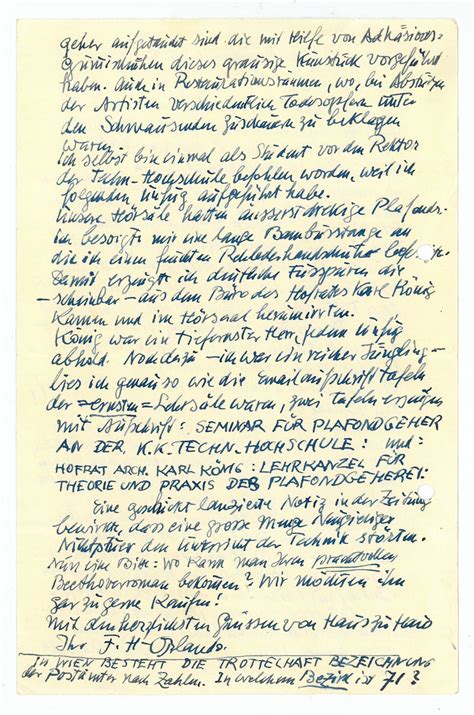 geher aufgetaucht sind die mit Hilfe von Adhäsions-
gummischuhen dieses grausige Kunststück vorgeführt
haben. Auch in Restaurationsräumen, wo, bei Abstürzen
der Artisten verschiedentlich Todesopfern unter
den schmausenden Zuschauern zu beklagen
waren.
Ich selbst bin einmal als Student vor den Rektor
der Techn. Hochschule befohlen worden, weil ich
folgenden Unfug aufgeführt habe.
Unsere Hörsäle hatten ausserst dreckige Plafonds.
Ich besorgte mir eine lange Bambusstange an
die ich einen feuchten Rehlederhandschuher
Damit erzeugte ich deutliche Fusspuren die
– scheinbar – aus dem Büro des Hofrates Karl König
kamen und im Hörsaal herumirrten.
König war ein tiefernster Herr, jedem Unfug
abhold. Noch dazu – ich war ein reicher Jüngling –
lies ich genau so wie die Emailaufschrifttafeln
der =ernsten= Lehrsäle waren, zwei Tafeln erzeugen
mit Aufschrift: SEMINAR FÜR PLAFONDGEHER
AN DER K.K. TECHN. HOCHSCHULE: und:
HOFRAT ARCH. KARL KÖNIG: LEHRKANZEL FÜR
THEORIE UND PRAXIS DER PLAFONDGEHEREI:
Eine geschickt lanzierte Notiz in der Zeitung
bewirkte, dass eine grosse Menge Neugieriger
den Unterricht der Technik störten.
Nun eine Bitte: wo kann man Ihren prachtvollen
Beethovenroman bekommen? Wir möchten ihn
gar zu gerne kaufen!
Mit den herzlichsten Grüssen von Haus zu Haus
Ihr F. H-Orlando.
IN WIEN BESTEHT DIE TROTTELHAFT BEZEICHNUNG
der Postämter nach Zahlen. In welchem Bezirk ist 71?